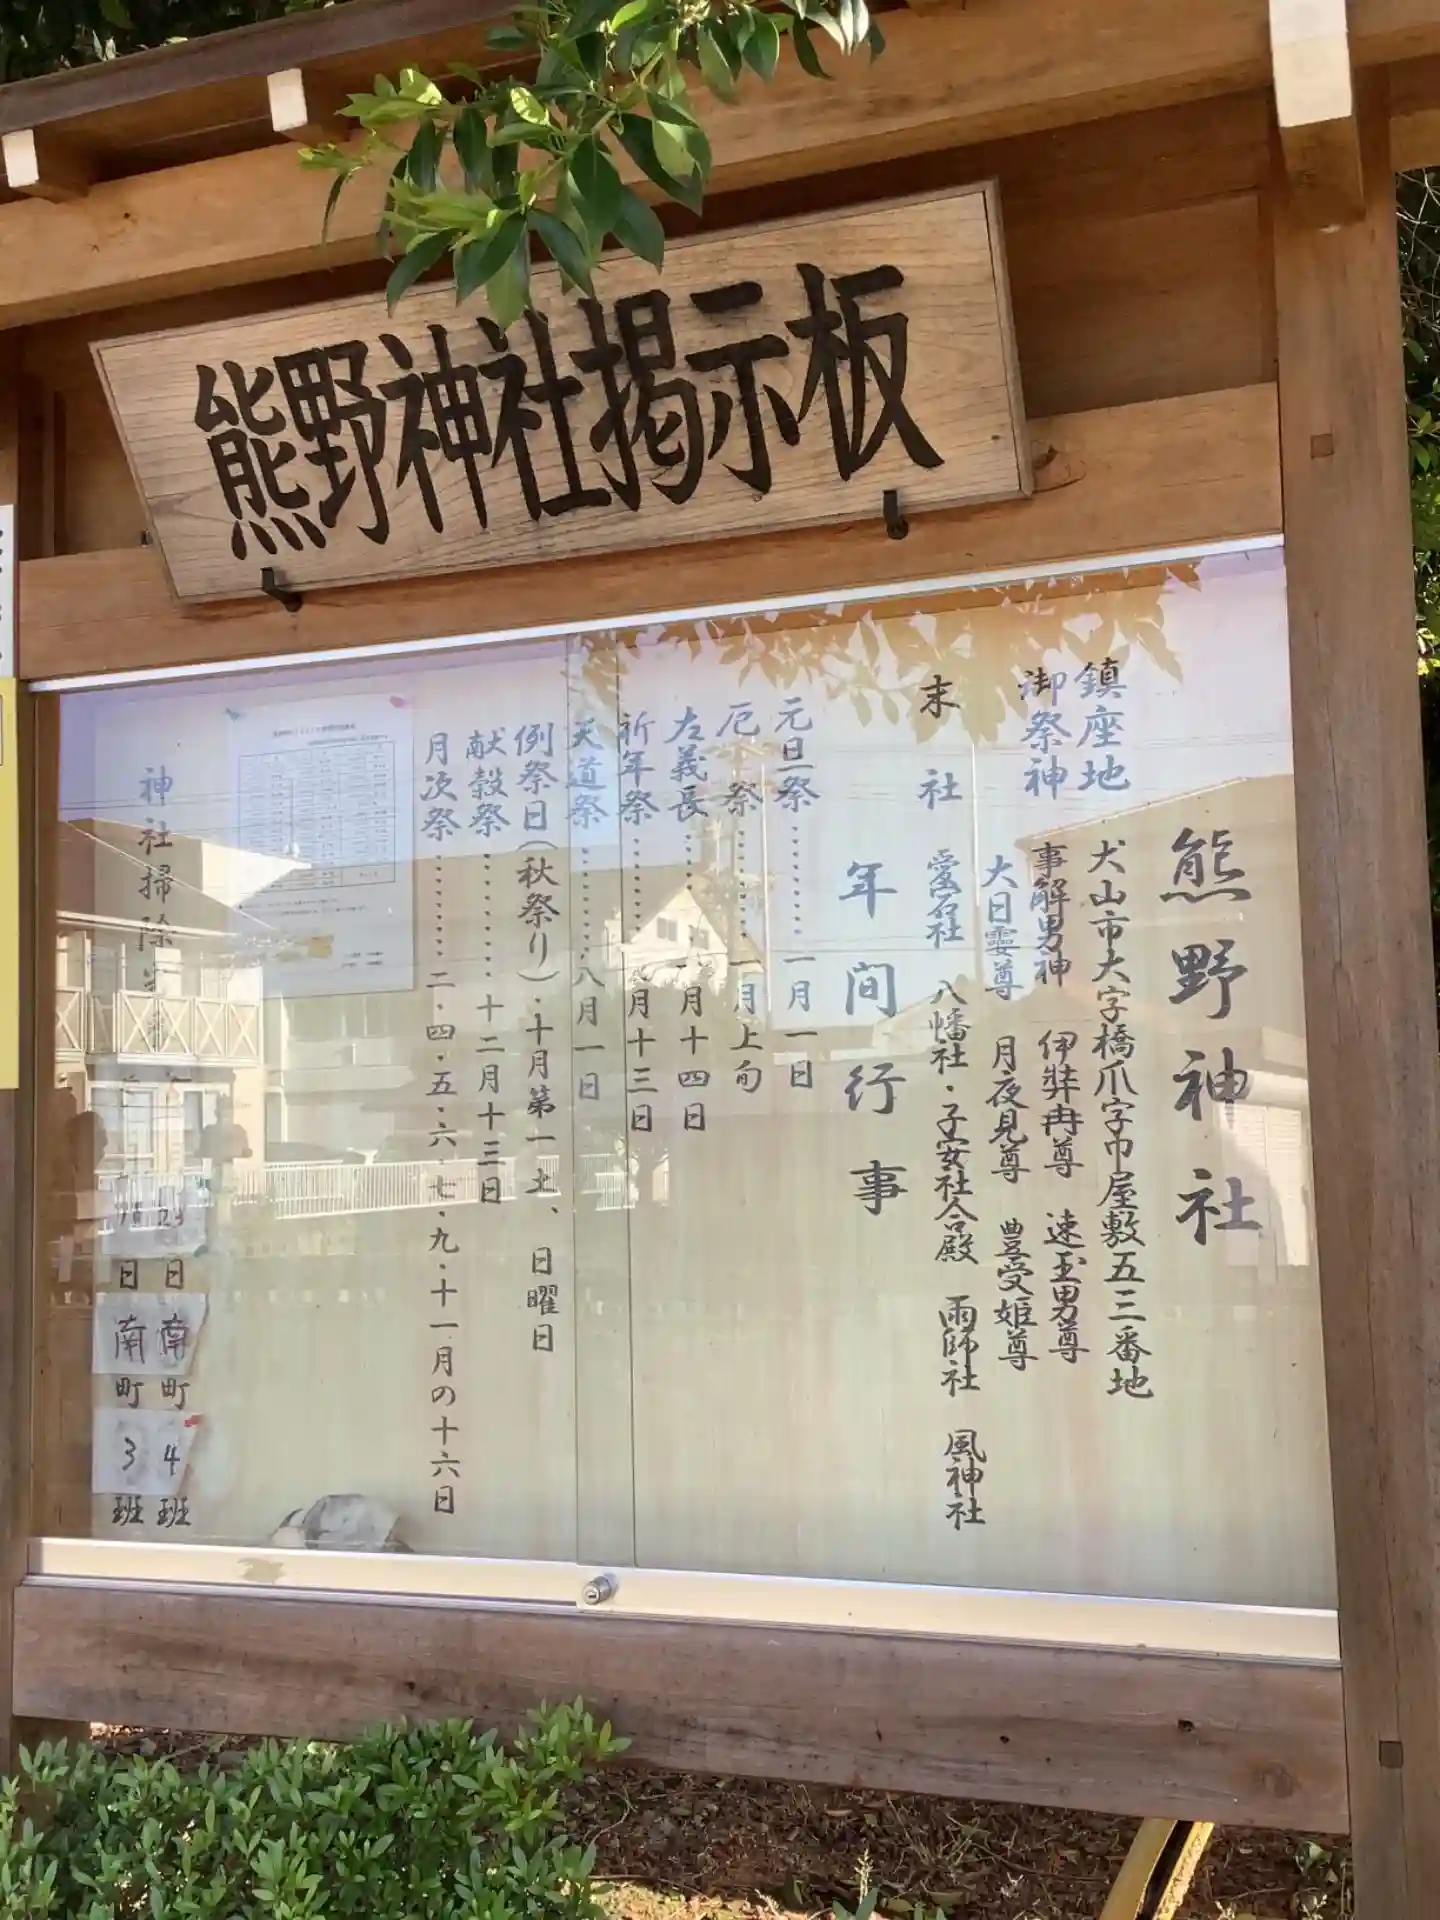 熊野神社掲示板
熊野神社
鎮座地 犬山市大字橋爪字巾屋敷五三番地
御祭神 事解男神 伊弉冉尊 速玉男尊
大日孁尊 月夜見尊 豊受姫尊
末社 愛宕社 八幡社・子安社合殿 雨師社 風神社
年間行事
元旦祭‥‥‥一月一日
厄祭‥‥‥一月上旬
左義長‥‥‥月十四日
祈年祭‥‥‥月十三日
天道祭‥‥‥八月一日
例祭日(秋祭り)・十月第一土、日曜日
献穀祭‥‥‥十二月十三日
月次祭‥‥‥二・四・五・六・七・九・十一月の十六日
神社掃除
日 南町 4 班
日 南町 3 班